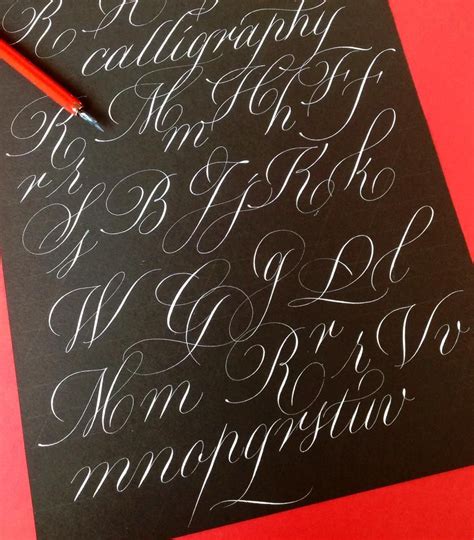 R
calligraphy
R Mm Hh Ff
r r
S s B Jj Kk
W G g D d
Mm R r r Vv
mnopqrstuv